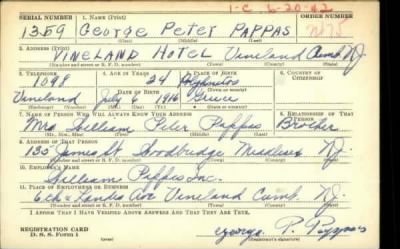 1-C 6-20-42
SERIAL NUMBER 1. NAME (Print) ORDER NUMBER
1359 George Peter PAPPAS
(First) (Middle) (Last)
2. ADDRESS (Print)
VINELAND HOTEL Vineland Cumb NJ.
(Number and street or R. F. D. number) (Town) (County) (State)
3. TELEPHONE 4. AGE IN YEARS 5. PLACE OF BIRTH 6. COUNTRY OF CITIZENSHIP
1098 24
DATE OF BIRTH
Vineland July 6 1916 Greece
(Exchange) (Mo.) (Day) (Yr.) (State or country)
7. NAME OF PERSON WHO WILL ALWAYS KNOW YOUR ADDRESS 8. RELATIONSHIP OF THAT PERSON
William Peter Pappas Brother
(Mr., Mrs., Miss) (First) (Middle) (Last)
9. ADDRESS OF THAT PERSON
135 James St Woodbridge Middlesex NJ.
(Number and street or R. F. D. number) (Town) (County) (State)
10. EMPLOYER'S NAME
William Pappas Inc.
11. PLACE OF EMPLOYMENT OR BUSINESS
6th & Landis Ave Vineland Cumb. NJ.
(Number and street or R. F. D. number) (Town) (County) (State)
I AFFIRM THAT I HAVE VERIFIED ABOVE ANSWERS AND THAT THEY ARE TRUE.
REGISTRATION CARD
D. S. S. Form 1
George P. Pappas
(Registrant's signature)